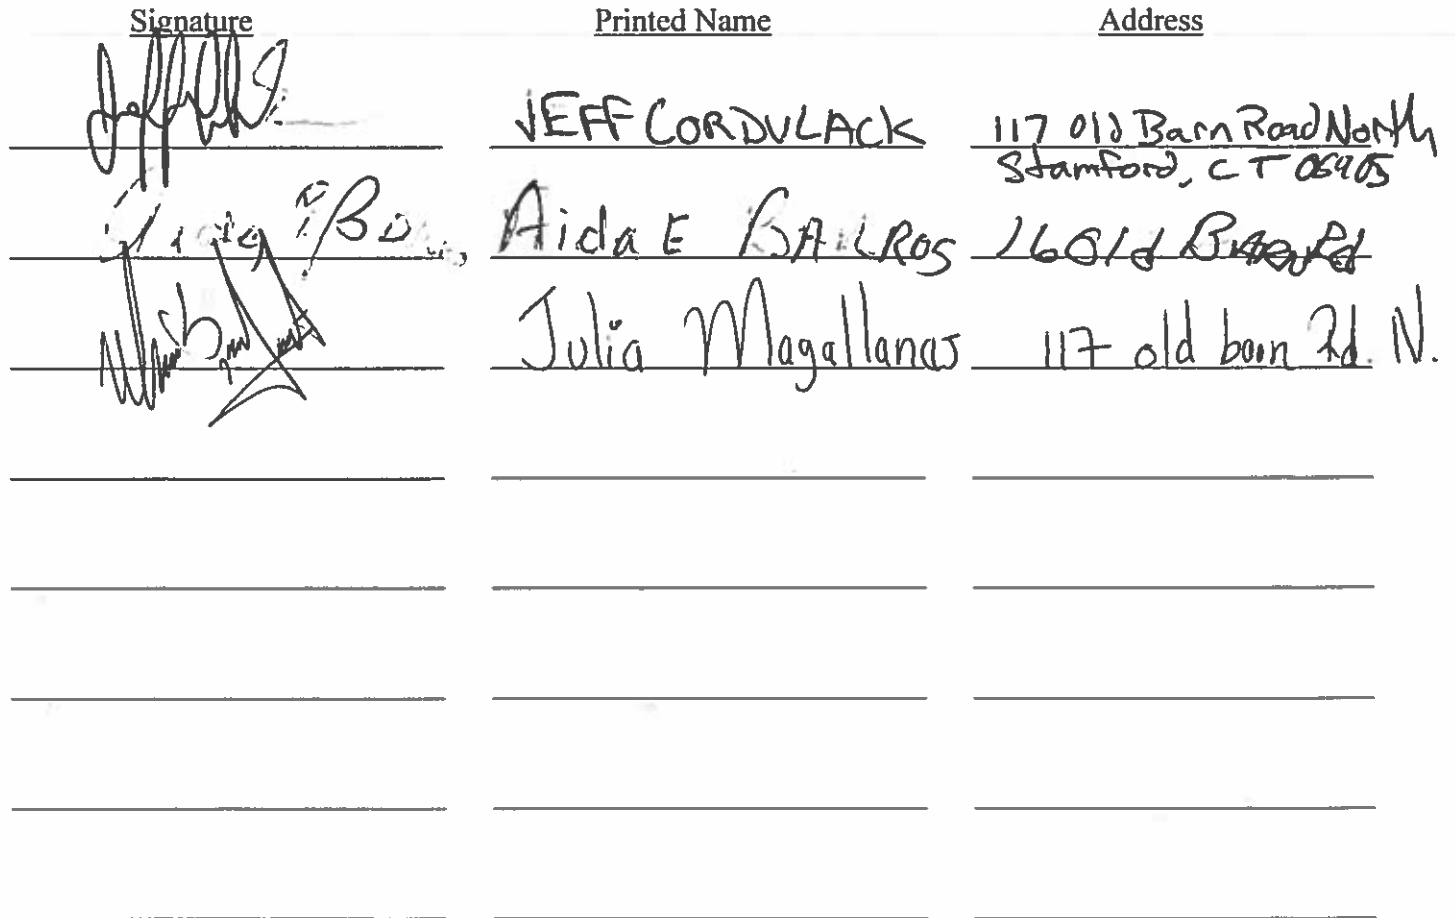 Signature Printed Name Address
JEFF CORDULACK 117 Old Barn Road North
Stamford, CT 06905
Aida E BAiLROS 16 Old Rd
Julia Magallanas 117 old barn Rd. N.